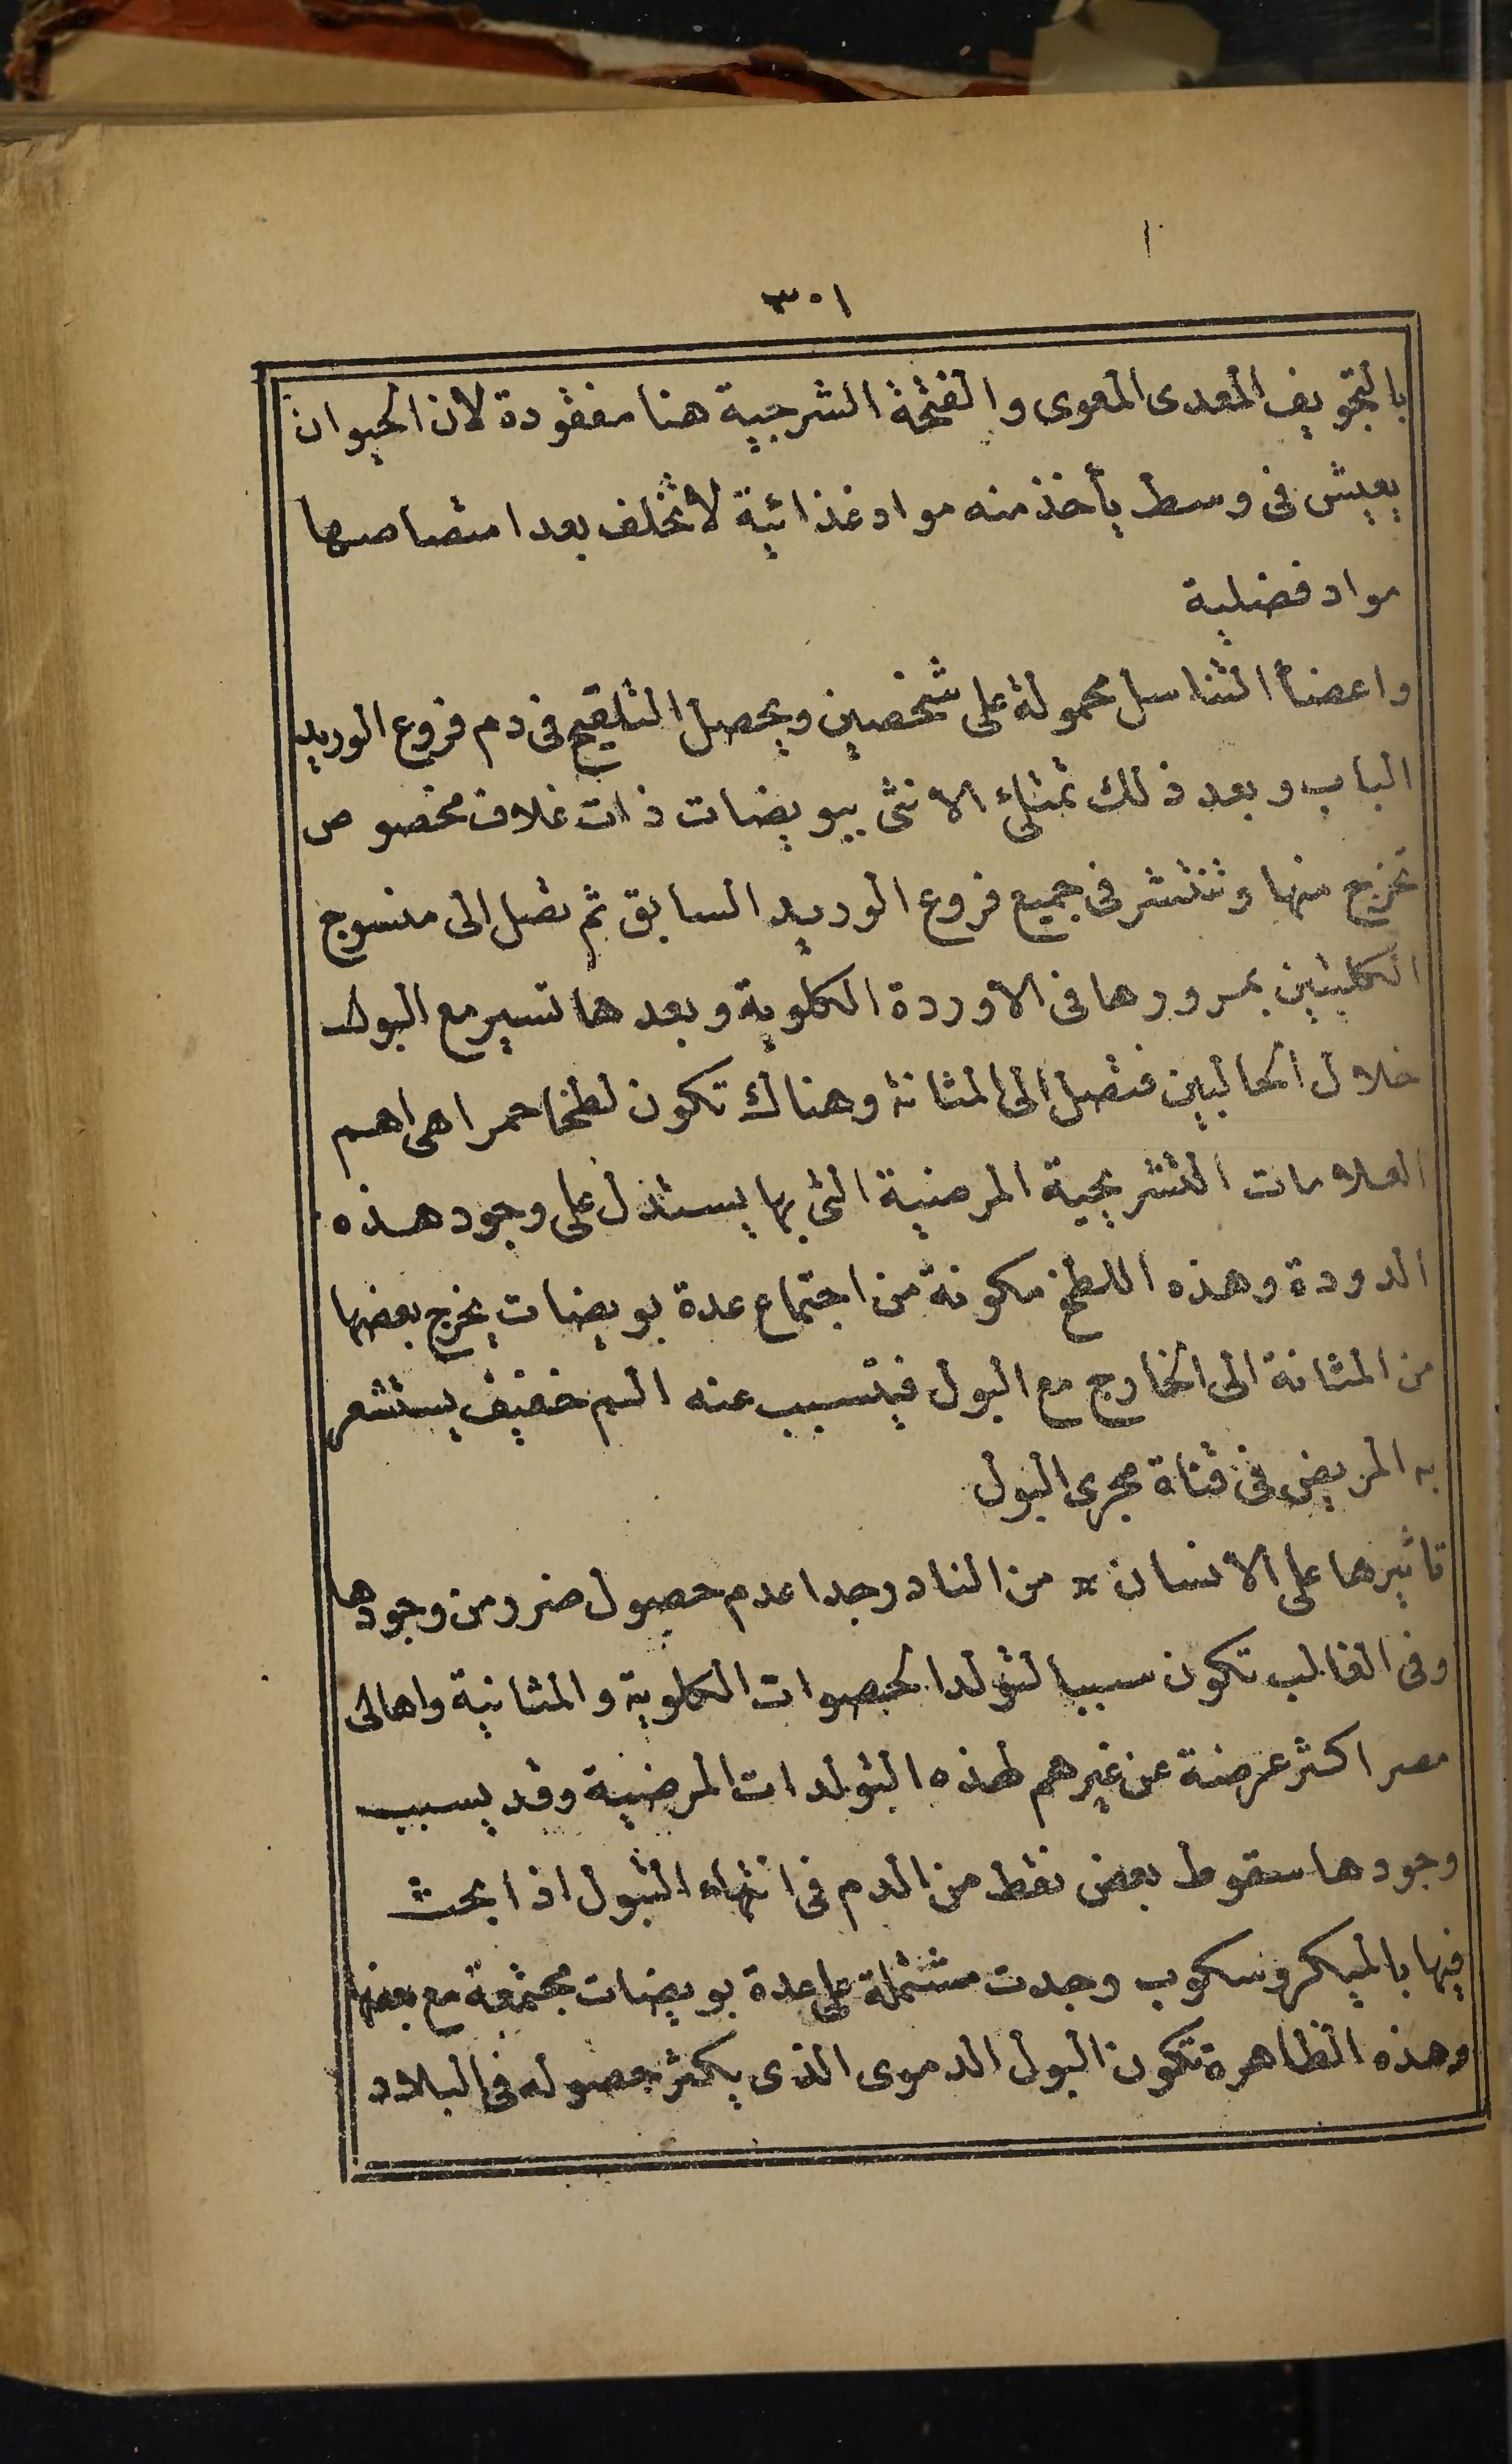 ٣٠١
بالتجويف المعدى المعوى والفتحة الشرجية هنا مفقودة لأن الحيوان
يعيش فى وسط يأخذ منه مواد غذائية لا تخلف بعد امتصاصها
مواد فضلية
واعضأ التناسل محمولة على شخصين ويحصل التلقيح فى دم فروع الوريد
الباب وبعد ذلك تمتلئ الانثى ببويضات ذات غلاف مخصوص
تخرج منها وتنتشر فى جميع فروع الوريد السابق ثم تصل الى منسوج
الكليتين بمرورها فى الاوردة الكلوية وبعدها تسير مع البول
خلال الحالبين فتصل الى المثانة وهناك تكون لطخا حمرا هى اهم
العلامات التشريحية المرضية التى بها يستدل على وجود هذه
الدودة وهذه اللطخ مكونة من اجتماع عدة بويضات يخرج بعضها
من المثانة الى الخارج مع البول فيتسبب عنه الم خفيف يستشعر
به المريض فى قناة مجرى البول
تاثيرها على الانسان * من النادر جدا عدم حصول ضرر من وجودها
وفى الغالب تكون سببا لتولد الحصوات الكلوية والمثانية واهالى
مصر اكثر عرضة عن غيرهم لهذه التولدات المرضية وقد يسبب
وجودها سقوط بعض نقط من الدم فى انتهاء التبول اذا بحث
فيها بالميكروسكوب وجدت مشتملة على عدة بويضات مجتمعة مع بعضها
وهذه الظاهرة تكون البول الدموى الذى يكثر حصوله فى البلاد